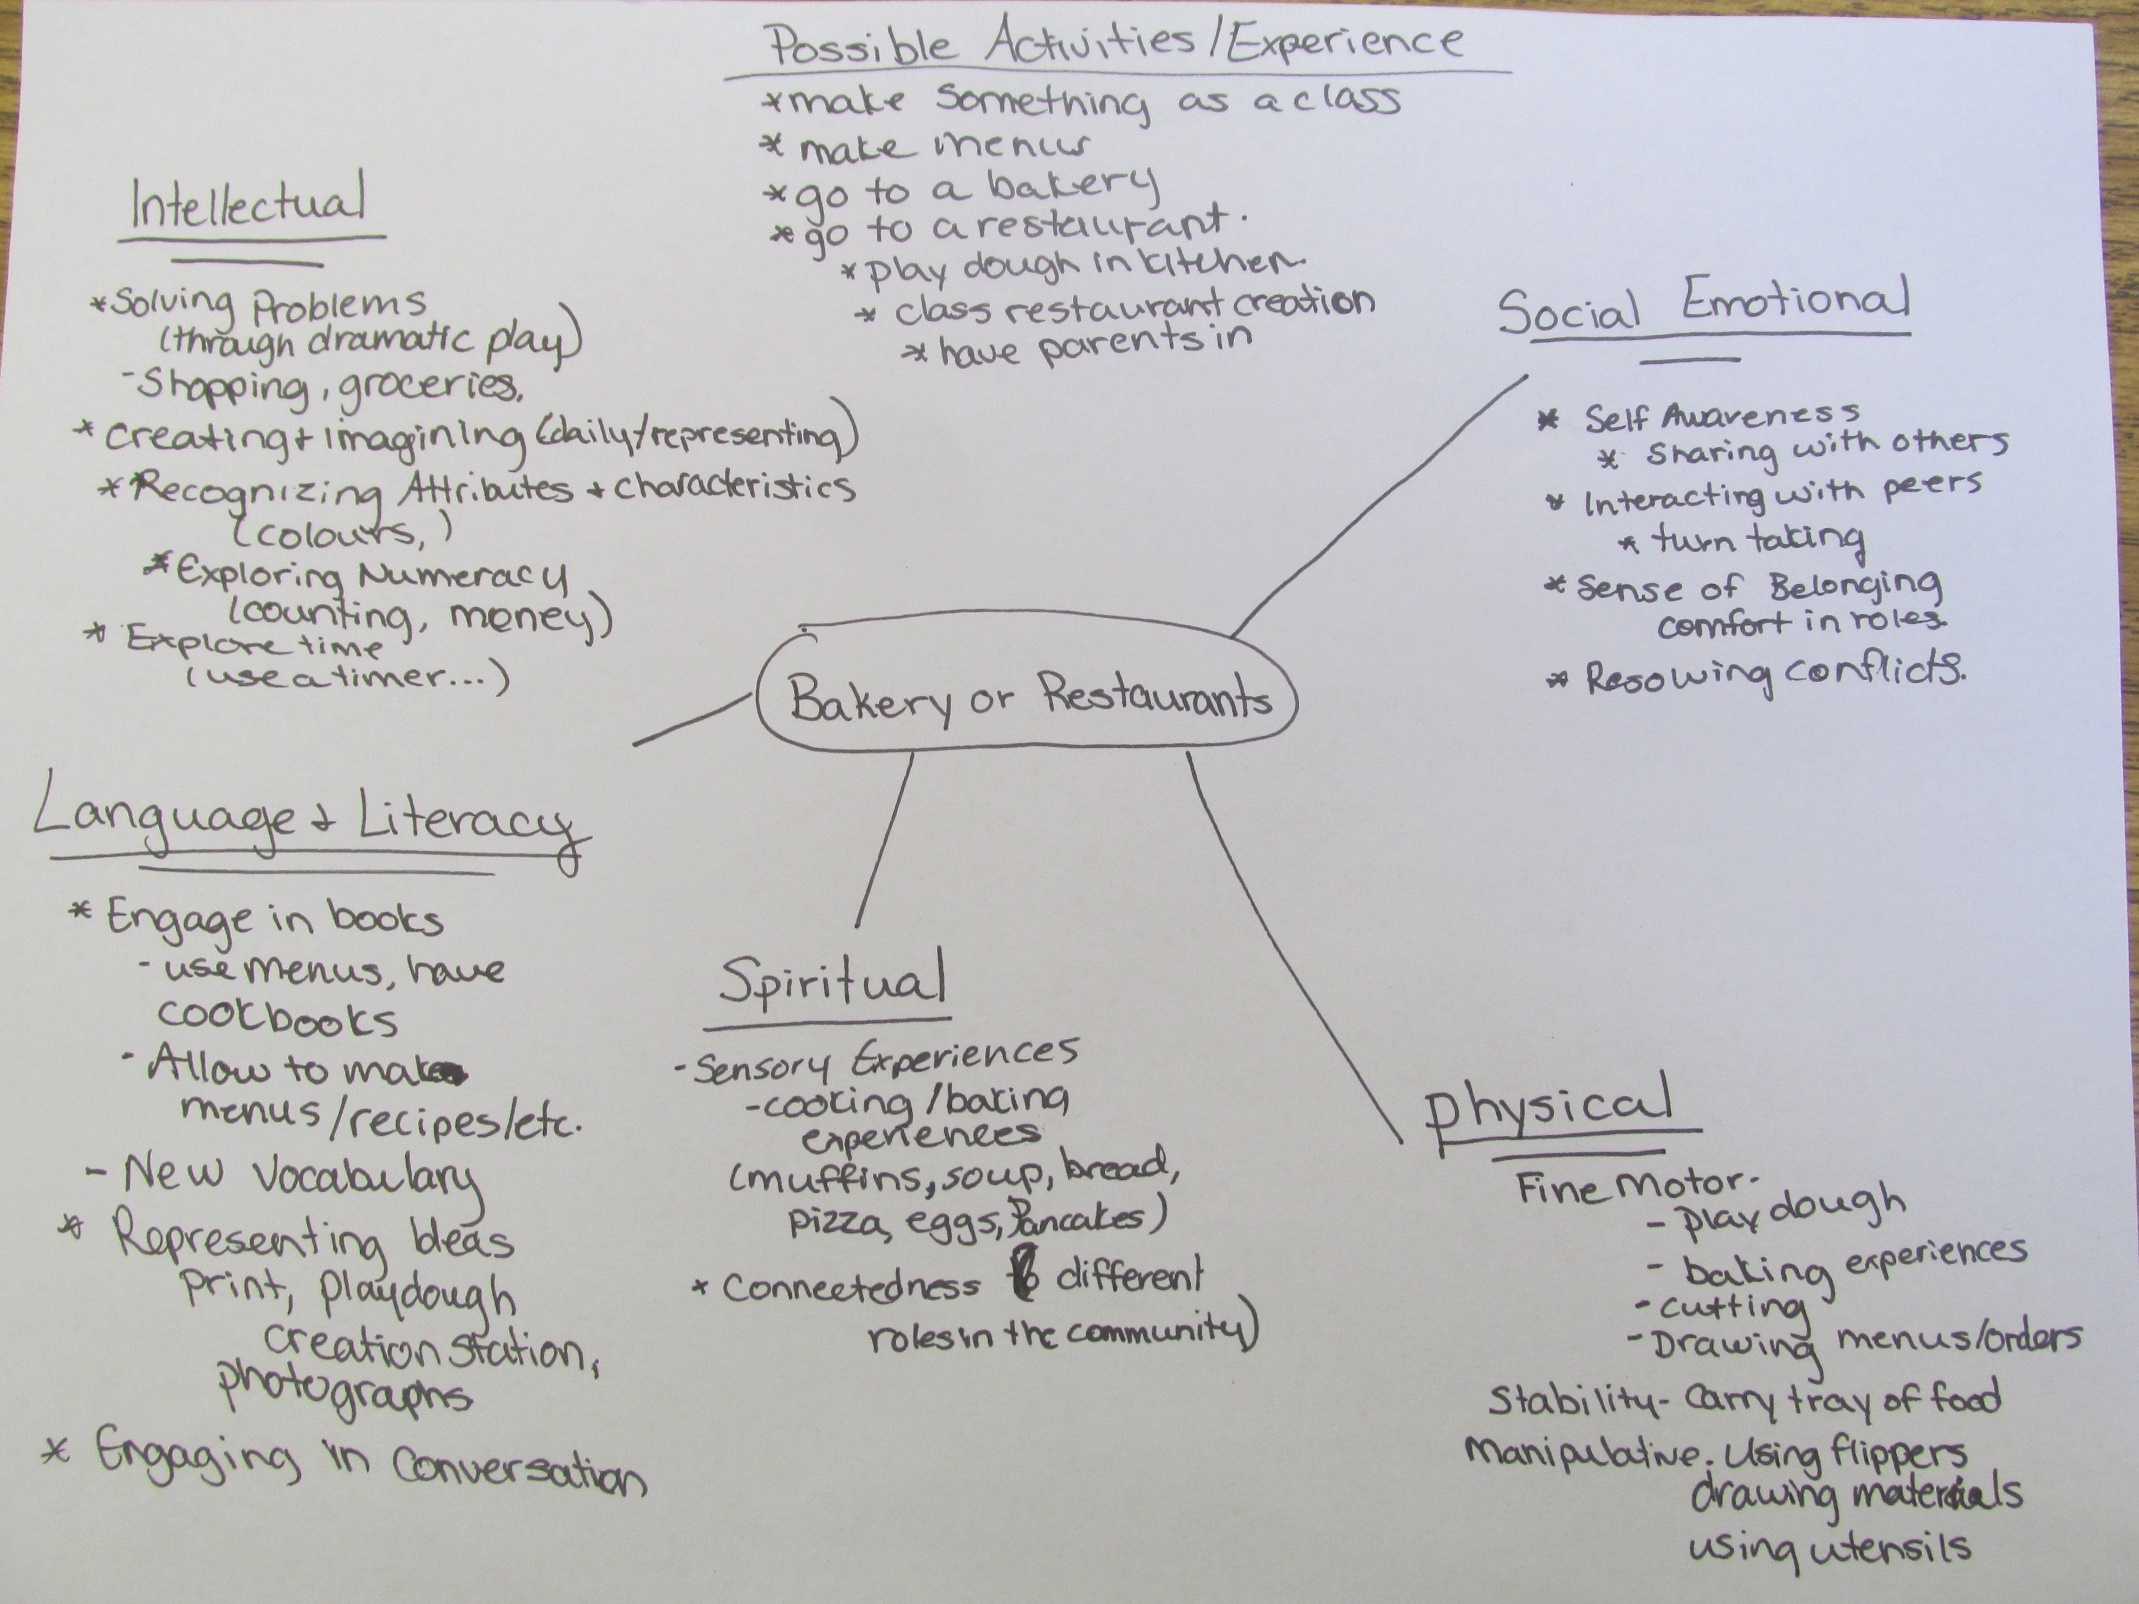 Possible Activities/Experience
*make something as a class
* make menus
* go to a bakery
* go to a restaurant.
* play dough in kitchen
* class restaurant creation
* have parents in
Intellectual
*Solving Problems
(through dramatic play)
- Shopping, groceries,
* Creating + imagining (daily/representing)
* Recognizing Attributes + characteristics
(colours, )
* Exploring Numeracy
(counting, money)
* Explore time
(use a timer...)
Social Emotional
* Self Awareness
* Sharing with others
* Interacting with peers
* turn taking
* Sense of Belonging
comfort in roles.
* Resolving conflicts.
Bakery or Restaurants
Language + Literacy
* Engage in books
- use menus, have
cookbooks
- Allow to make
menus/recipes/etc.
- New Vocabulary
* Representing Ideas
print, playdough
creation station,
photographs
* Engaging in Conversation
Spiritual
- Sensory Experiences
- cooking / baking
experiences
(muffins, soup, bread,
pizza, eggs, Pancakes)
* Connectedness to different
roles in the community)
physical
Fine Motor-
- play dough
- baking experiences
- cutting
- Drawing menus/orders
Stability- Carry tray of food
Manipulative. Using flippers
drawing materials
using utensils